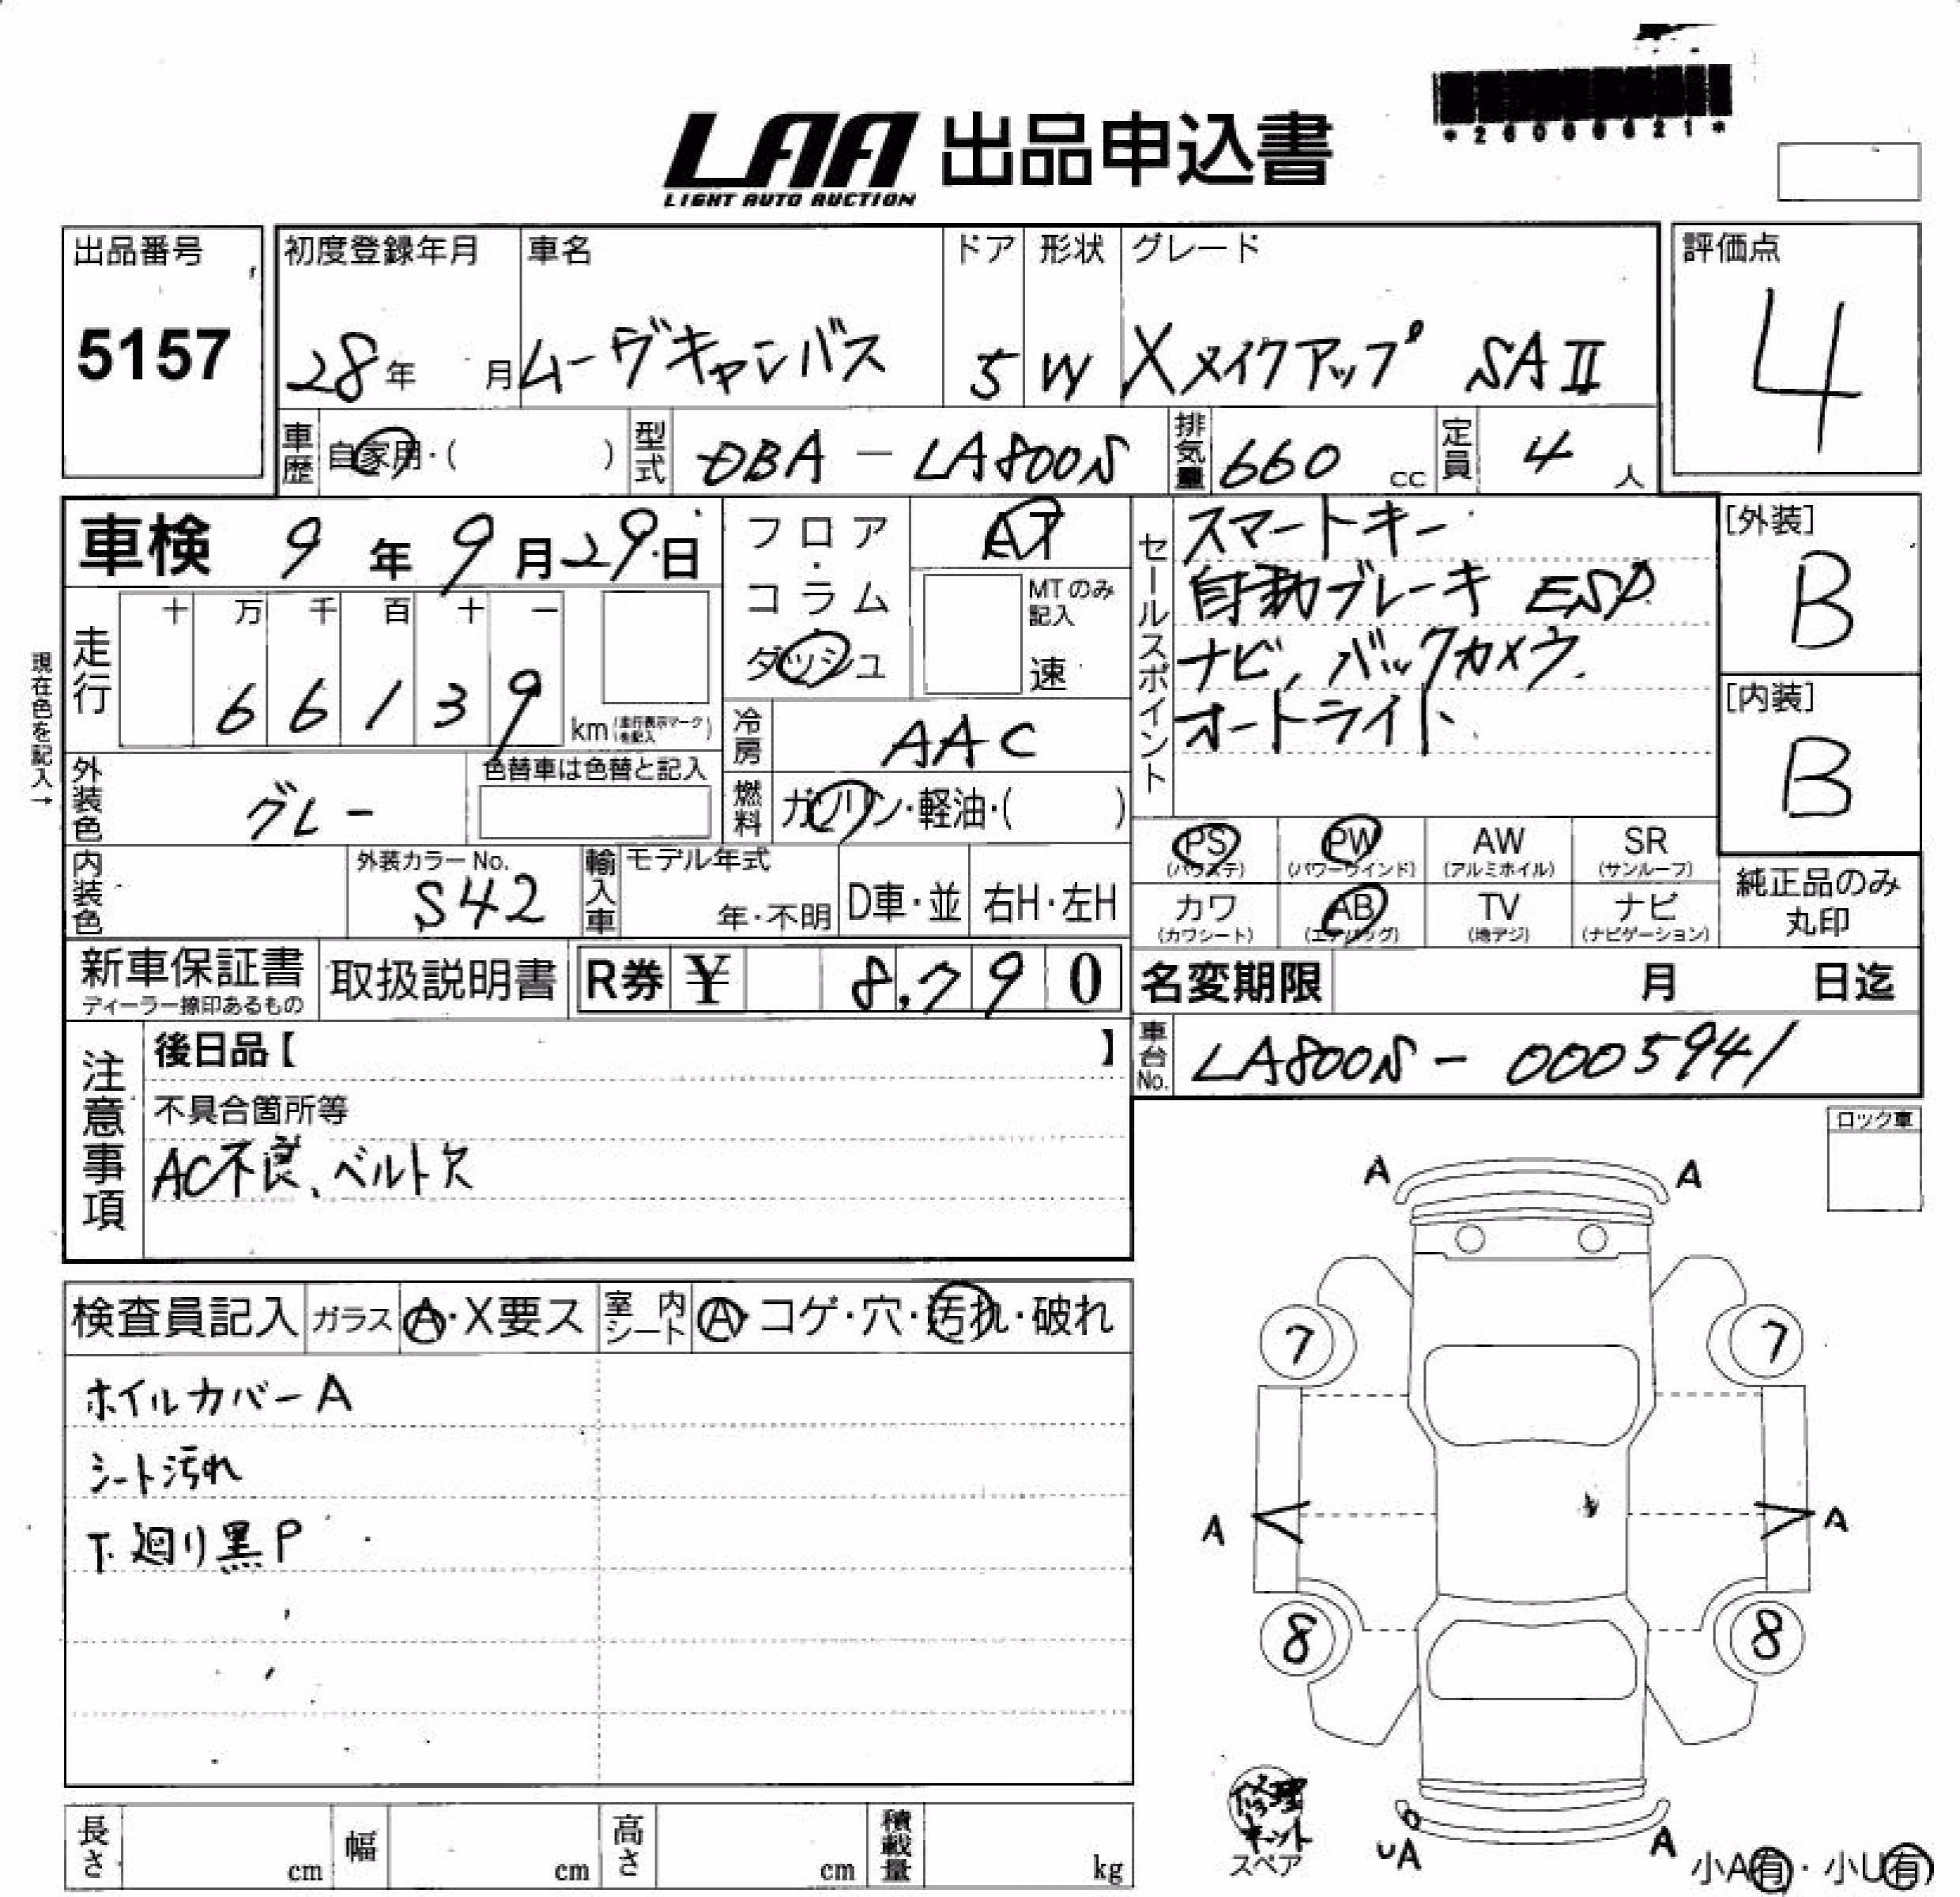 *26060621*
LAA 出品申込書
LIGHT AUTO AUCTION
出品番号 初度登録年月 車名 ドア 形状 グレード 評価点
5157 28年 月 ムーヴキャンバス 5 W Xメイクアップ SAⅡ 4
車歴 自家用・( ) 型式 DBA - LA800S 排気量 660 cc 定員 4 人
車検 9年 9月 29日
フロア・コラム
ダッシュ
AT
MTのみ記入
速
セールスポイント
スマートキー
自動ブレーキ ESP
ナビ, バックカメラ.
オートライト、
[外装]
B
[内装]
B
現在色を記入→
走行 十 万 千 百 十 一
6 6 1 3 9 km (走行表示マークを記入)
冷房 AAC
外装色 グレー 色替車は色替と記入
燃料 ガソリン・軽油・( )
PS PW AW SR
(パワステ) (パワーウインド) (アルミホイル) (サンルーフ)
カワ AB TV ナビ
(カワシート) (エアバッグ) (地デジ) (ナビゲーション)
純正品のみ
丸印
内装色 外装カラーNo. S42 輸入車 モデル年式
年・不明 D車・並 右H・左H
新車保証書 取扱説明書 R券 ¥ 8,790
ディーラー捺印あるもの
名変期限 月 日迄
車台No. LA800S - 0005941
注意事項
後日品【 】
不具合箇所等
AC不良、ベルト欠
ロック車
検査員記入 ガラス A・X要ス 室内シート A・コゲ・穴・汚れ・破れ
ホイルカバーA
シート汚れ
下廻り黒P
A A
7 7
A A
8 8
修理
キット
スペア
UA A
小A有・小U有
長さ cm 幅 cm 高さ cm 積載量 kg